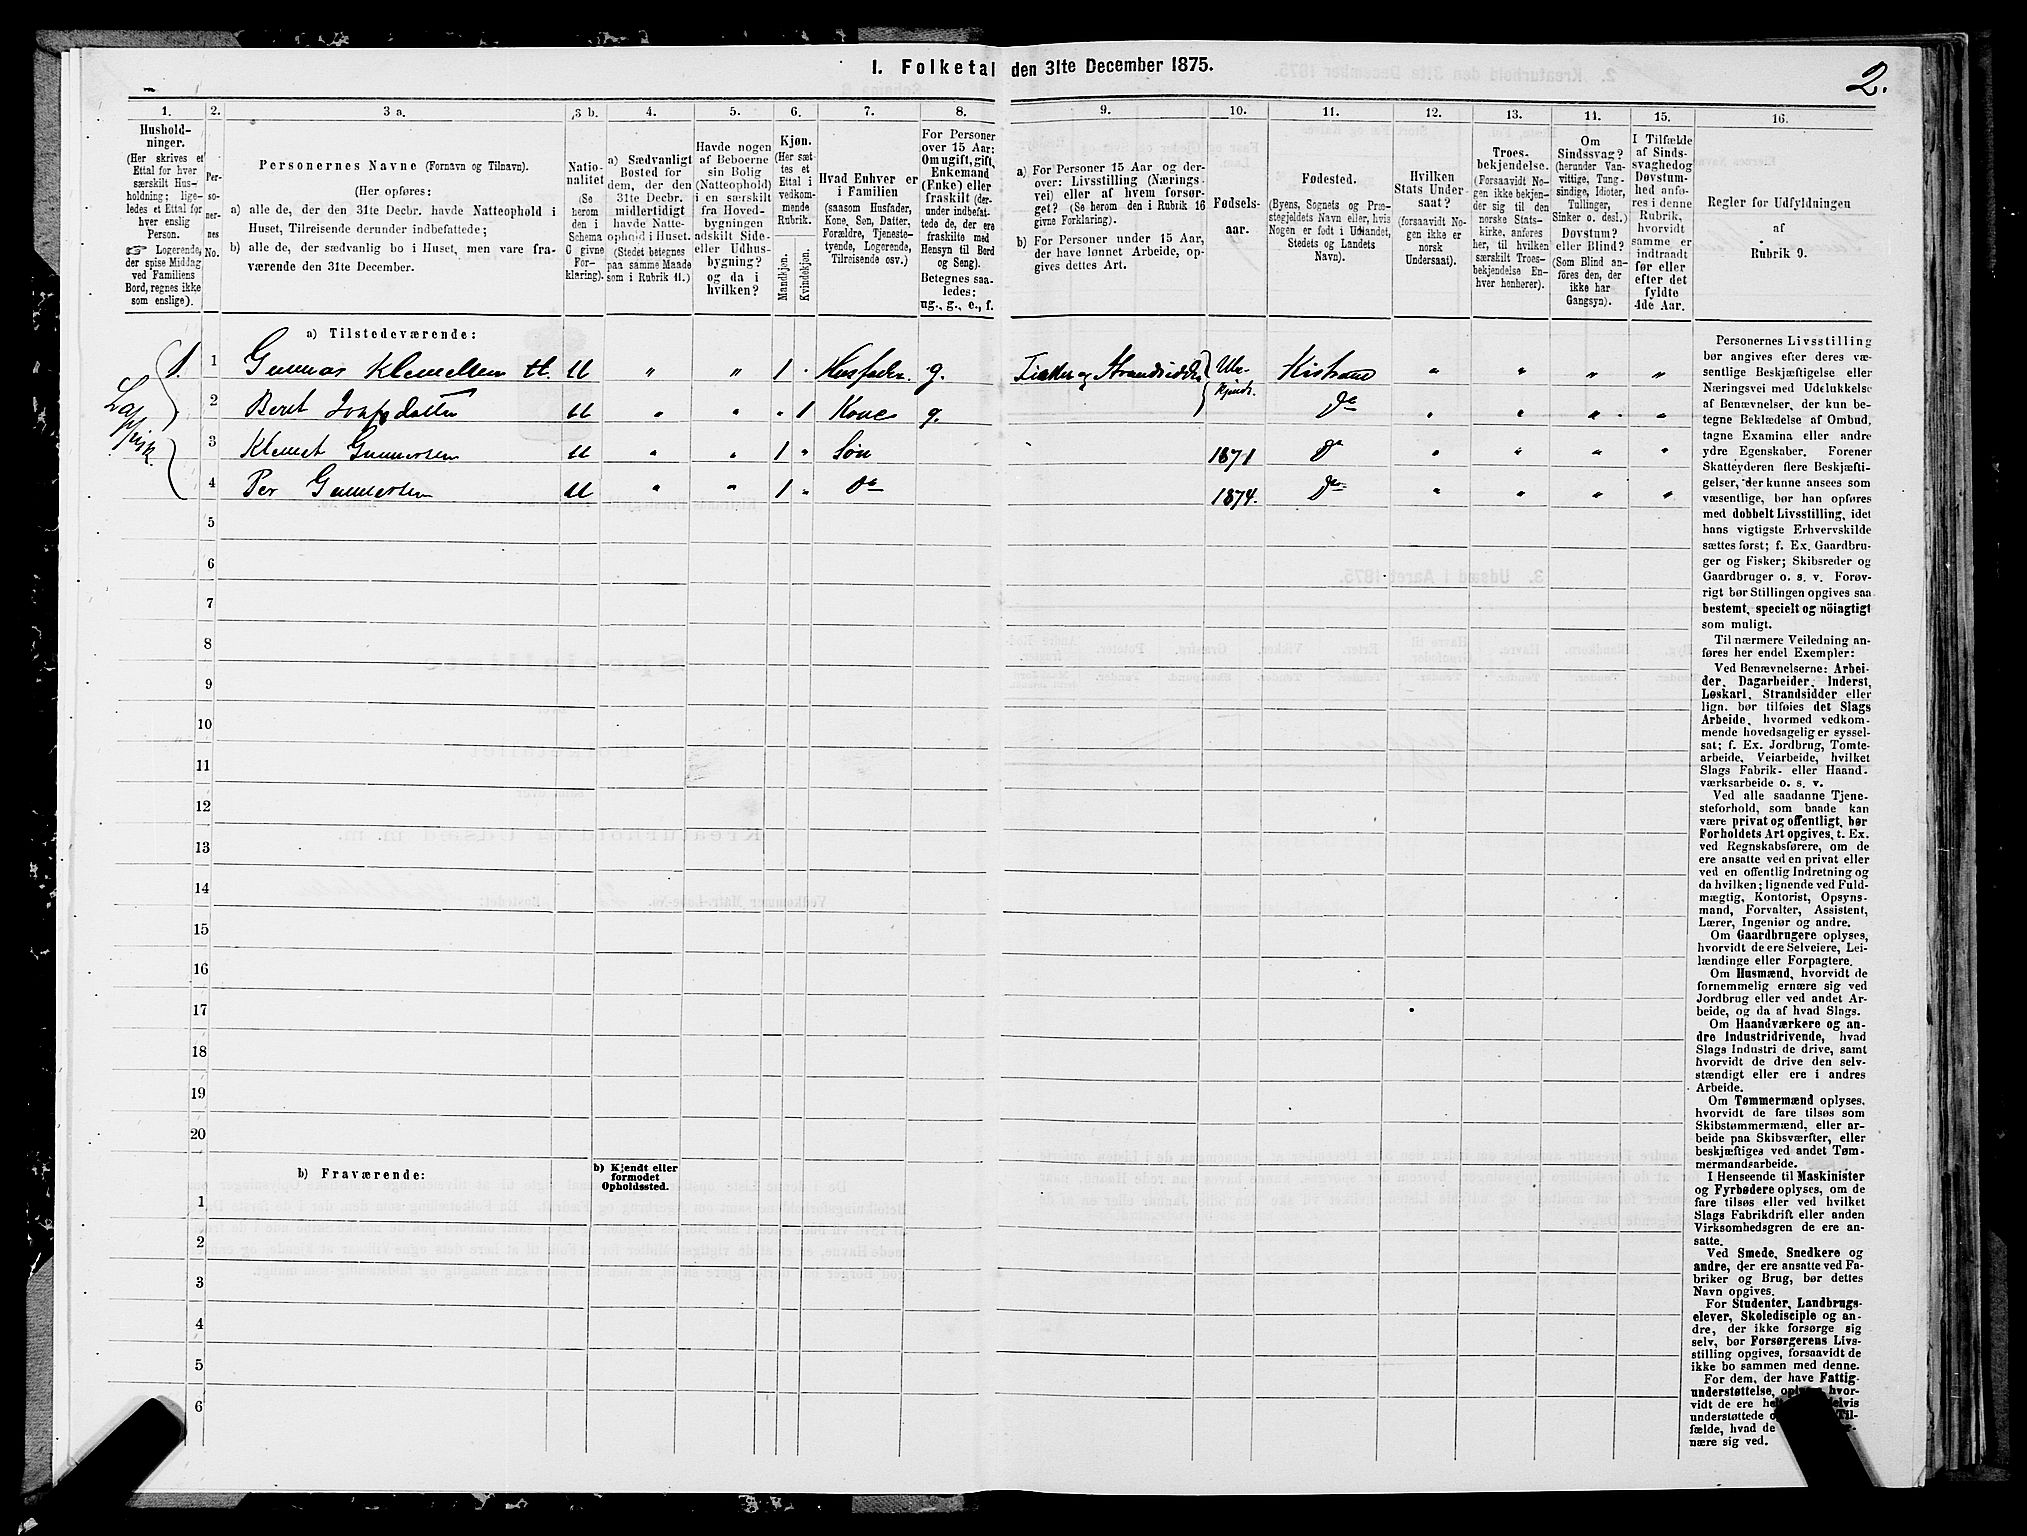 I. Folketal den 31te December 1875.
2.
1. 2. 3 a. 3 b. 4. 5. 6. 7. 8. 9. 10. 11. 12. 13. 11. 15. 16.
Hushold-
ninger.
(Her skrives et
Ettal for hver
særskilt Hus-
holdning; lige-
ledes et Ettal for
hver enslig
Person.
☞ Logerende,
der spise Middag
ved Familiens
Bord, regnes ikke
som enslige).
Per-
so-
ner-
nes
No.
Personernes Navne (Fornavn og Tilnavn).
(Her opføres:
a) alle de, der den 31te Decbr. havde Natteophold i
Huset, Tilreisende derunder indbefattede;
b) alle de, der sædvanlig bo i Huset, men vare fra-
værende den 31te December.
Natio-
nalitet
(Se
herom
den i
Schema
G givne
For-
klaring).
a) Sædvanligt
Bosted for
dem, der den
31te Decbr.
midlertidigt
havde Natte-
ophold i Huset.
(Stedet betegnes
paa samme Maade
som i Rubrik 11.)
Havde nogen
af Beboerne
sin Bolig
(Natteophold)
i en særskilt
fra Hoved-
bygningen
adskilt Side-
eller Udhus-
bygning?
og da i
hvilken?
Kjøn.
(Her sæt-
tes et
Ettal i
vedkom-
mende
Rubrik.
Mandkjøn.
Kvindekjøn.
Hvad Enhver er
i Familien
(saasom Husfader,
Kone, Søn, Datter,
Forældre, Tjeneste-
tyende, Logerende,
Tilreisende osv.)
For Personer
over 15 Aar:
Om ugift, gift,
Enkemand
(Enke) eller
fraskilt (der-
under indbefat-
tede de, der ere
fraskilte med
Hensyn til Bord
og Seng).
Betegnes saa-
ledes:
ug., g., e., f.
a) For Personer 15 Aar og der-
over: Livsstilling (Nærings-
vei) eller af hvem forsør-
get? (Se herom den i Rubrik 16
givne Forklaring).
b) For Personer under 15 Aar,
der have lønnet Arbeide, op-
gives dettes Art.
Fødsels-
aar.
Fødested.
(Byens, Sognets og Præ-
stegjeldets Navn eller, hvis
Nogen er født i Udlandet,
Stedets og Landets
Navn).
Hvilken
Stats Under-
saat?
(forsaavidt No-
gen ikke er
norsk
Undersaat).
Troes-
bekjendelse.
(Forsaavidt No-
gen ikke bekjen-
der sig til den
norske Stats-
kirke, anføres
her, til hvilken
særskilt Troes-
bekjendelse En-
hver henhører).
Om
Sindssvag?
(herunder Van-
vittige, Tung-
sindige, Idioter,
Tullinger,
Sinker o. desl.)
Døvstum?
eller Blind?
(Som Blind an-
føres den, der
ikke har
Gangsyn).
I Tilfælde
af Sinds-
svaghed og
Døvstum-
hed anfø-
res i denne
Rubrik,
hvorvidt
samme er
indtraadt
før eller
efter det
fyldte
4de Aar.
Regler for Udfyldningen
af
Rubrik 9.
a) Tilstedeværende:
Lappisk.
1. 1 Gunnar Klemetsen tt. " " 1 Husfader. g. Fisker og Strandsidder Ube-kjendt. Kistrand " " " "
2 Beret " " " 1 Kone g. Do " " " "
3 Klemet Gunnersen " " 1 " Søn 1871 Do " " " "
4 Per Gunnersen " " 1 " Do 1874. Do " " " "
5
6
7
8
9
10
11
12
13
14
15
16
17
18
19
20
b) Fraværende:
b) Kjendt eller
formodet
Opholdssted.
1
2
3
4
5
6
Personernes Livsstilling
bør angives efter deres væ-
sentlige Beskjæftigelse eller
Næringsvei med Udelukkelse
af Benævnelser, der kun be-
tegne Beklædelse af Ombud,
tagne Examina eller andre
ydre Egenskaber. Forener
Skatteyderen flere Beskjæfti-
gelser, der kunne ansees som
væsentlige, bør han opføres
med dobbelt Livsstilling, idet
hans vigtigste Erhvervskilde
sættes først; f. Ex. Gaardbru-
ger og Fisker; Skibsreder og
Gaardbruger o. s. v. Forøv-
rigt bør Stillingen opgives saa
bestemt, specielt og nöiagtigt
som muligt.
Til nærmere Veiledning an-
føres her endel Exempler:
Ved Benævnelserne: Arbei-
der, Dagarbeider, Inderst,
Løskarl, Strandsidder eller
lign. bør tilføies det Slags
Arbeide, hvormed vedkom-
mende hovedsagelig er syssel-
sat; f. Ex. Jordbrug, Tomte-
arbeide, Veiarbeide, hvilket
Slags Fabrik- eller Haand-
værksarbeide o. s. v.
Ved alle saadanne Tjene-
steforhold, som baade kan
være privat og offentligt, bør
Forholdets Art opgives, t. Ex.
ved Regnskabsførere, om de
ere ansatte ved en privat eller
ved en offentlig Indretning og
da hvilken; lignende ved Fuld-
mægtig, Kontorist, Opsyns-
mand, Forvalter, Assistent,
Lærer, Ingeniør og andre.
Om Gaardbrugere oplyses,
hvorvidt de ere Selveiere, Lei-
lændinge eller Forpagtere.
Om Husmænd, hvorvidt de
fornemmelig ernære sig ved
Jordbrug eller ved andet Ar-
beide, og da af hvad Slags.
Om Haandværkere og an-
dre Industridrivende, hvad
Slags Industri de drive, samt
hvorvidt de drive den selv-
stændigt eller ere i andres
Arbeide.
Om Tømmermænd oplyses,
hvorvidt de fare tilsøs som
Skibstømmermænd, eller ar-
beide paa Skibsværfter, eller
beskjæftiges ved andet Tøm-
mermandsarbeide.
I Henseende til Maskinister
og Fyrbødere oplyses, om de
fare tilsøs eller ved hvilket
Slags Fabrikdrift eller anden
Virksomhedsgren de ere an-
satte.
Ved Smede, Snedkere og
andre, der ere ansatte ved Fa-
briker og Brug, bør dettes
Navn opgives.
For Studenter, Landbrugs-
elever, Skoledisciple og an-
dre, der ikke forsørge sig
selv, bør Forsørgerens Livs-
stilling opgives, forsaavidt de
ikke bo sammen med denne.
For dem, der have Fattig-
understøttelse, oplyses hvor-
vidt de ere
understøttede
fælde, hvad de
nære sig ved.